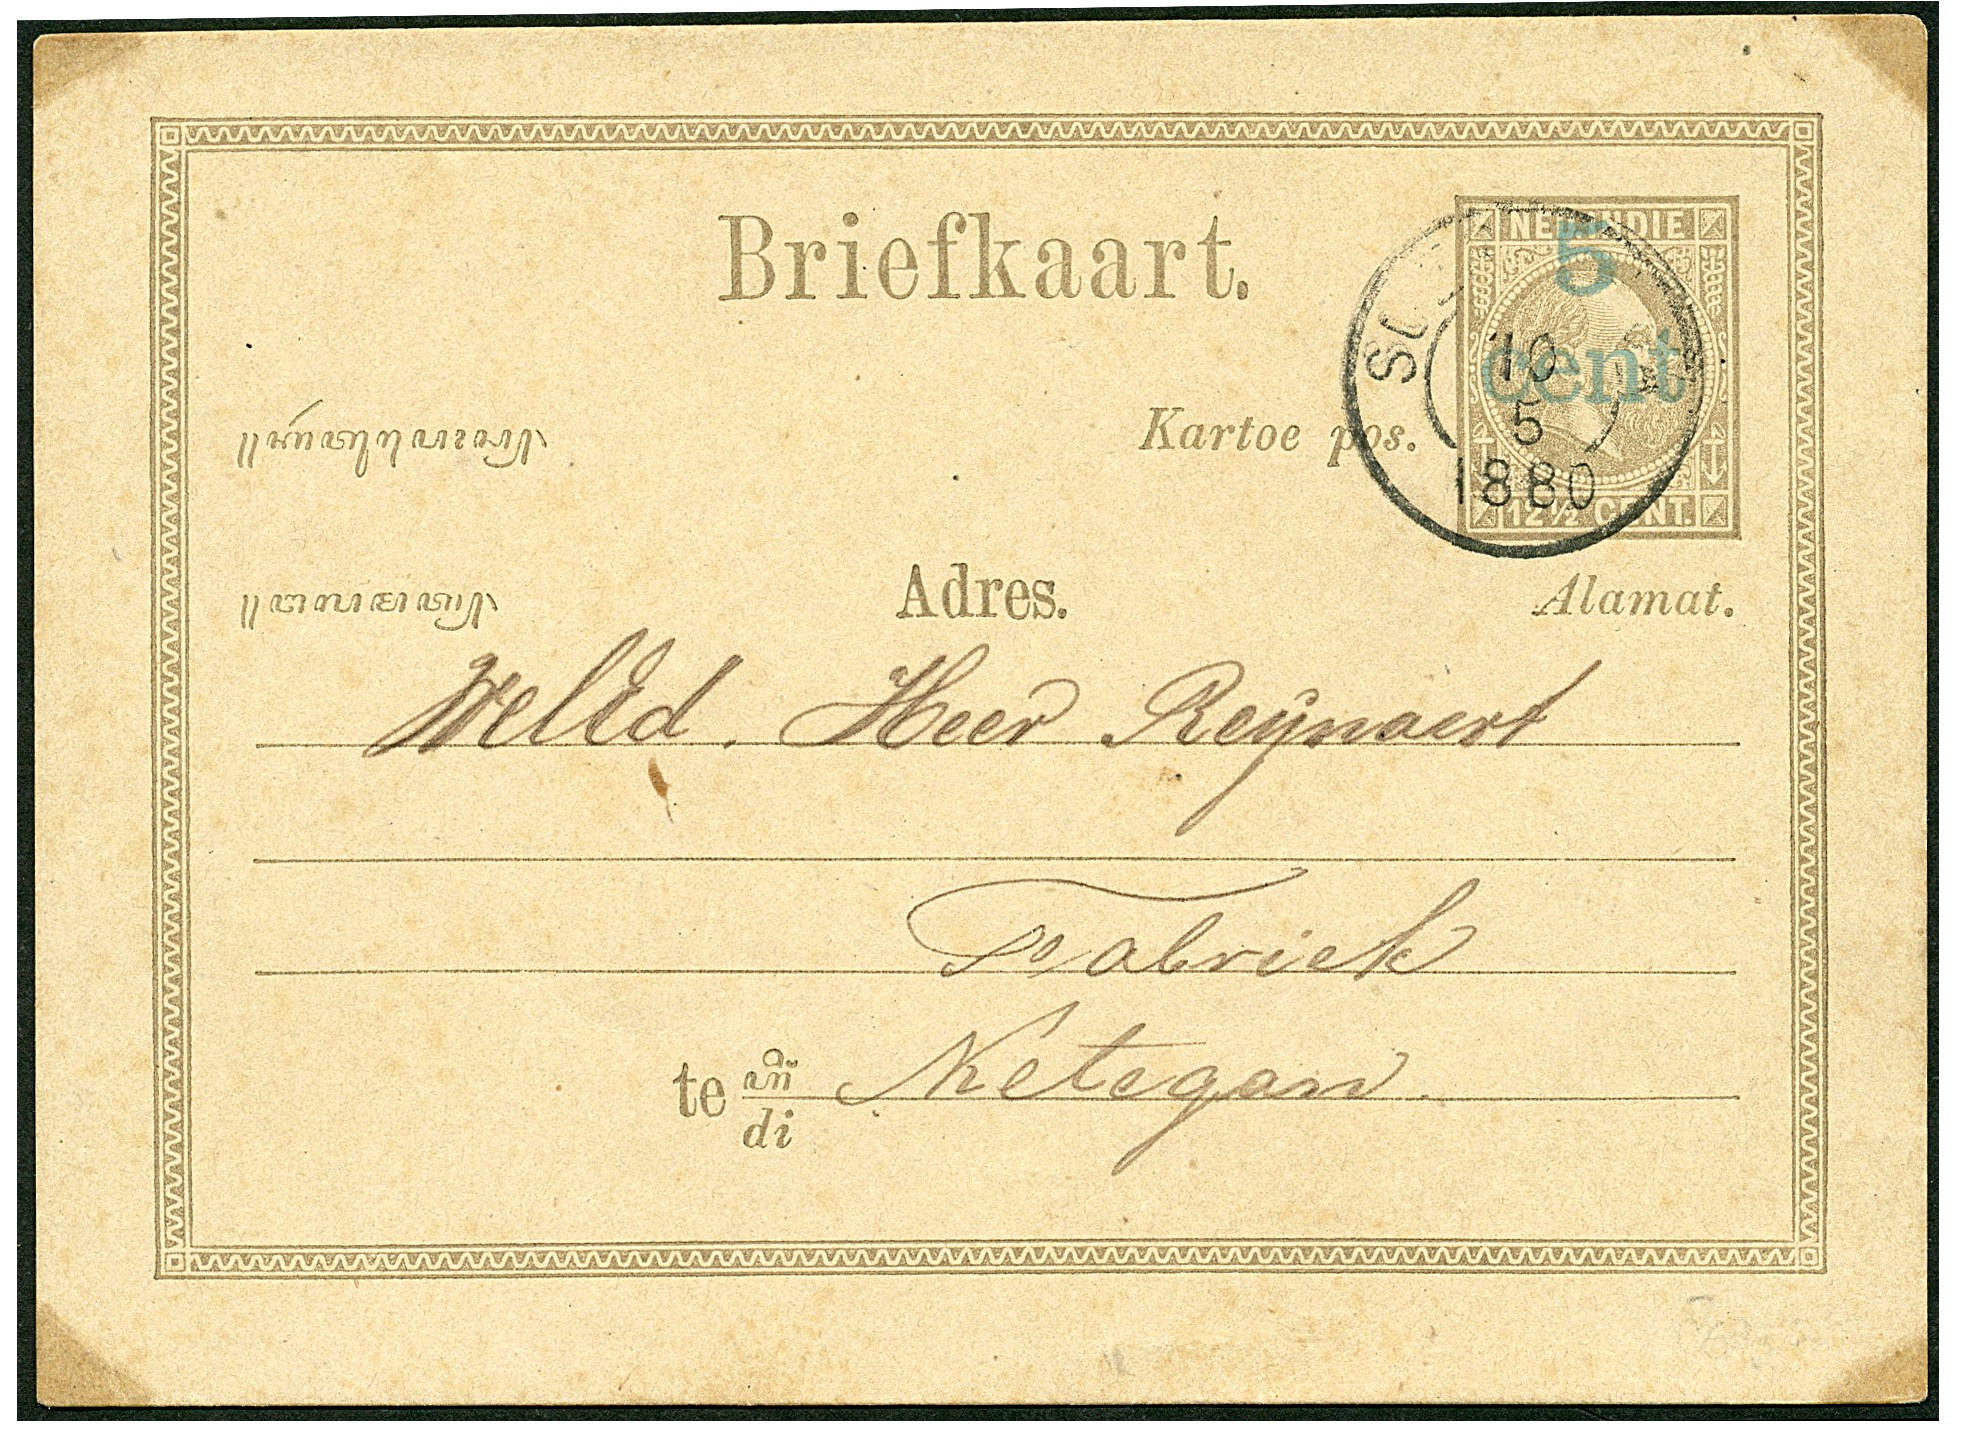 Briefkaart.
NED. INDIE
5
cent
10
5
1880
12½ CENT.
Kartoe pos.
Adres.
Alamat.
WelEd. Heer Reijnaert
Fabriek
te
di
Ketegan